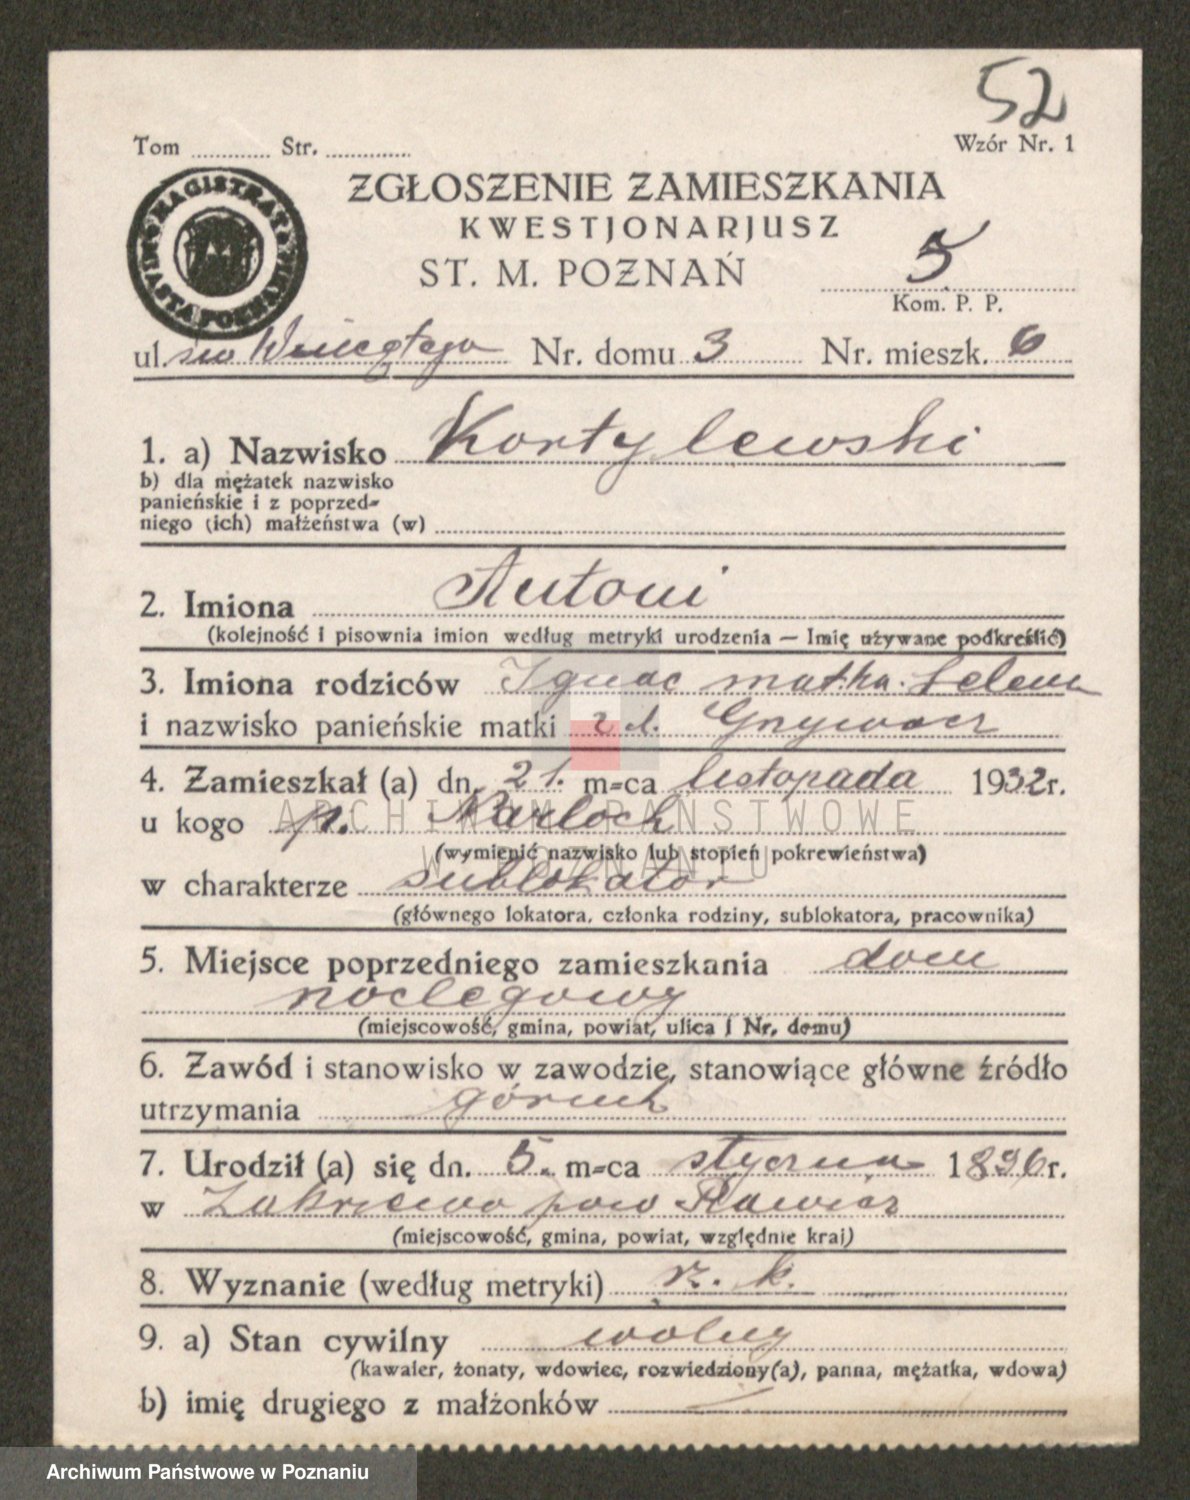 52
Tom ............ Str. ............
Wzór Nr. 1
MAGISTRAT MIASTA POZNANIA
ZGŁOSZENIE ZAMIESZKANIA
KWESTJONARJUSZ
ST. M. POZNAŃ
5
Kom. P. P.
ul. św Nr. domu 3 Nr. mieszk. 6
1. a) Nazwisko Kortylewski
b) dla mężatek nazwisko
panieńskie i z poprzed-
niego (ich) małżeństwa (w)
2. Imiona Antoni
(kolejność i pisownia imion według metryki urodzenia — Imię używane podkreślić)
3. Imiona rodziców Ignac matka Helena
i nazwisko panieńskie matki z d.
4. Zamieszkał (a) dn. 21. m-ca listopada 1932 r.
u kogo p. Marloch
(wymienić nazwisko lub stopień pokrewieństwa)
w charakterze sublokator
(głównego lokatora, członka rodziny, sublokatora, pracownika)
5. Miejsce poprzedniego zamieszkania dom
noclegowy
(miejscowość, gmina, powiat, ulica i Nr. domu)
6. Zawód i stanowisko w zawodzie, stanowiące główne źródło
utrzymania górnik
7. Urodził (a) się dn. 5. m-ca stycznia 1896 r.
w Zakrzewo pow Rawicz
(miejscowość, gmina, powiat, względnie kraj)
8. Wyznanie (według metryki) rz. k.
9. a) Stan cywilny wolny
(kawaler, żonaty, wdowiec, rozwiedziony(a), panna, mężatka, wdowa)
b) imię drugiego z małżonków —
ARCHIWUM PAŃSTWOWE
W POZNANIU
Archiwum Państwowe w Poznaniu